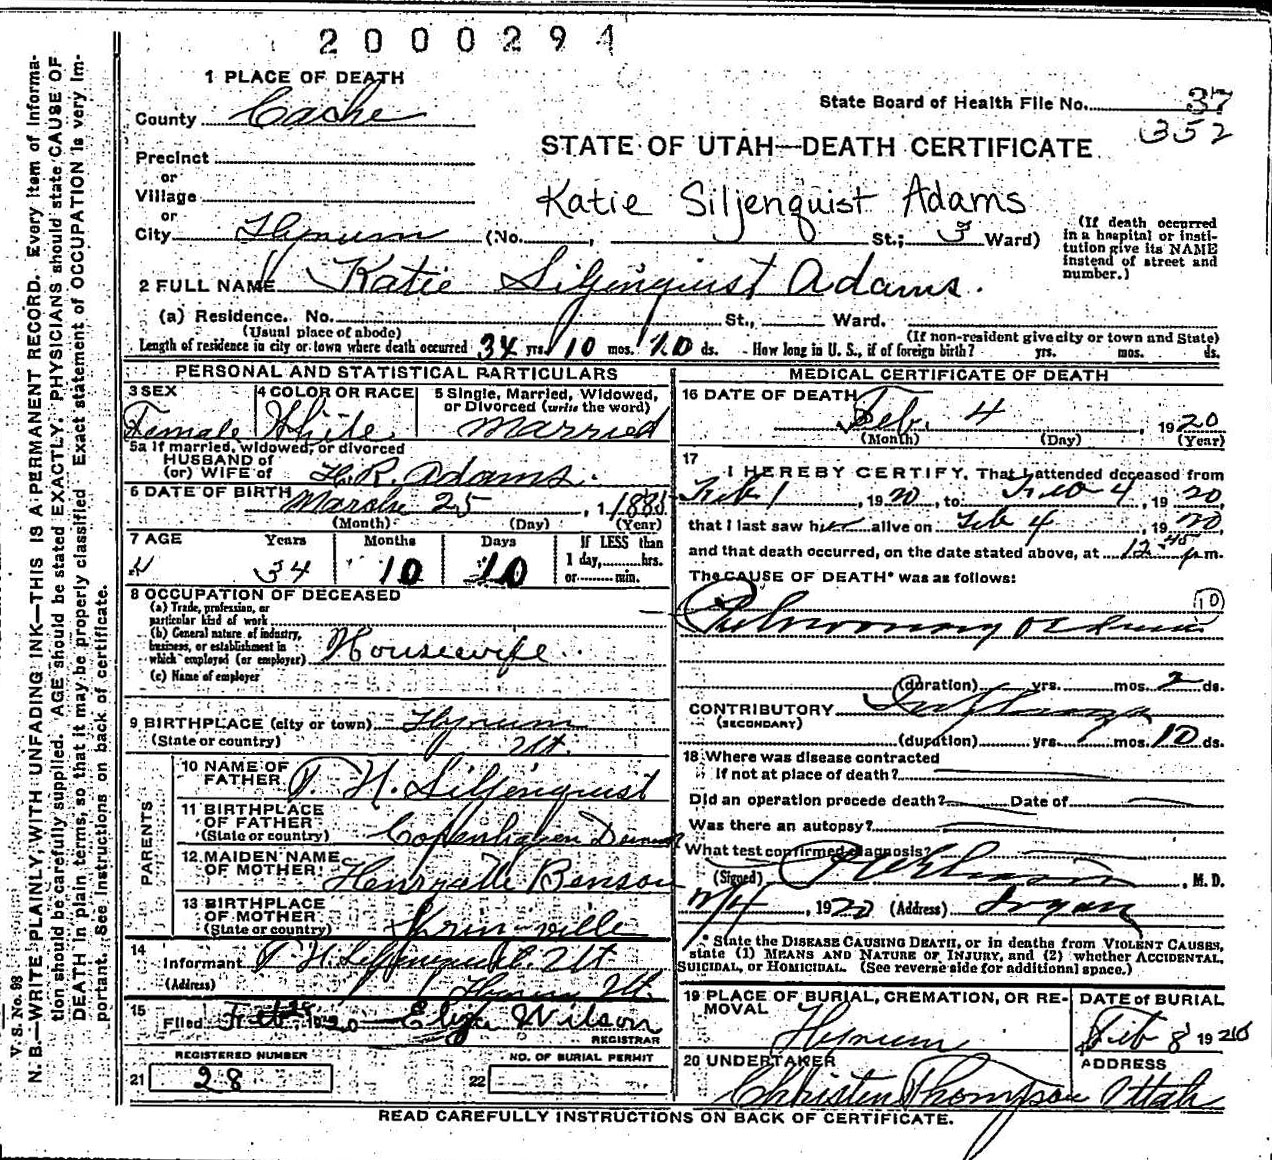 2000294
1 PLACE OF DEATH
County Cache
State Board of Health File No. 37
352
Precinct
or
Village
or
STATE OF UTAH—DEATH CERTIFICATE
Katie Siljenquist Adams
City Hyrum (No. , St.; 3 Ward)
(If death occurred in a hospital or institution give its NAME instead of street and number.)
2 FULL NAME Katie Siljenquist Adams.
(a) Residence. No. St., Ward.
(Usual place of abode) (If non-resident give city or town and State)
Length of residence in city or town where death occurred 34 yrs. 10 mos. 10 ds. How long in U. S., if of foreign birth? yrs. mos. ds.
PERSONAL AND STATISTICAL PARTICULARS
3 SEX Female
4 COLOR OR RACE White
5 Single, Married, Widowed, or Divorced (write the word) Married
5a If married, widowed, or divorced
HUSBAND of
(or) WIFE of H.R. Adams.
6 DATE OF BIRTH March 25, 1885
(Month) (Day) (Year)
7 AGE Years Months Days If LESS than
34 10 10 1 day, hrs.
or min.
8 OCCUPATION OF DECEASED
(a) Trade, profession, or particular kind of work
(b) General nature of industry, business, or establishment in which employed (or employer) Housewife
(c) Name of employer
9 BIRTHPLACE (city or town) Hyrum
(State or country) Ut.
PARENTS
10 NAME OF FATHER H. Siljenquist
11 BIRTHPLACE OF FATHER (State or country) Copenhagen
12 MAIDEN NAME OF MOTHER Benson
13 BIRTHPLACE OF MOTHER (State or country)
14
Informant H. Siljenquist Ut
(Address) Hyrum Ut.
15
Filed Feb 28 1920 Eliza Wilson
REGISTRAR
REGISTERED NUMBER
21 28
NO. OF BURIAL PERMIT
22
MEDICAL CERTIFICATE OF DEATH
16 DATE OF DEATH Feb. 4, 1920
(Month) (Day) (Year)
17
I HEREBY CERTIFY, That I attended deceased from
Feb 1, 1920, to Feb 4, 1920
that I last saw her alive on Feb 4, 1920
and that death occurred, on the date stated above, at 12 45 p m.
The CAUSE OF DEATH* was as follows:
10
Pulmonary oedema
(duration) yrs. mos. 2 ds.
CONTRIBUTORY Influenza
(SECONDARY)
(duration) yrs. mos. 10 ds.
18 Where was disease contracted
If not at place of death?
Did an operation precede death? Date of
Was there an autopsy?
What test confirmed diagnosis?
(Signed) , M. D.
, 1920 (Address) Logan
* State the DISEASE CAUSING DEATH, or in deaths from VIOLENT CAUSES, state (1) MEANS AND NATURE OF INJURY, and (2) whether ACCIDENTAL, SUICIDAL, or HOMICIDAL. (See reverse side for additional space.)
19 PLACE OF BURIAL, CREMATION, OR REMOVAL
Hyrum
DATE of BURIAL
Feb 8 1920
20 UNDERTAKER
Christen Thompson
ADDRESS
Uttah
READ CAREFULLY INSTRUCTIONS ON BACK OF CERTIFICATE.
V. S. No. 98
N. B.—WRITE PLAINLY, WITH UNFADING INK—THIS IS A PERMANENT RECORD. Every item of information should be carefully supplied. AGE should be stated EXACTLY. PHYSICIANS should state CAUSE OF DEATH in plain terms, so that it may be properly classified. Exact statement of OCCUPATION is very important. See instructions on back of certificate.